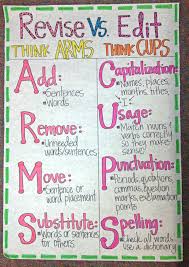 Revise Vs. Edit
THINK ARMS THINK CUPS
Add:
• Sentences
• Words
Remove:
• Unneeded
words/sentences
Move:
• Sentence or
word placement
Substitute:
• Words or sentences
for others
Capitalization:
• Names, places,
months, titles,
I
Usage:
• Match nouns &
verbs correctly
so they make
sense!
Punctuation:
• Periods, quotations,
commas, question
marks, exclamation
points
Spelling:
• Check all words
use a dictionary